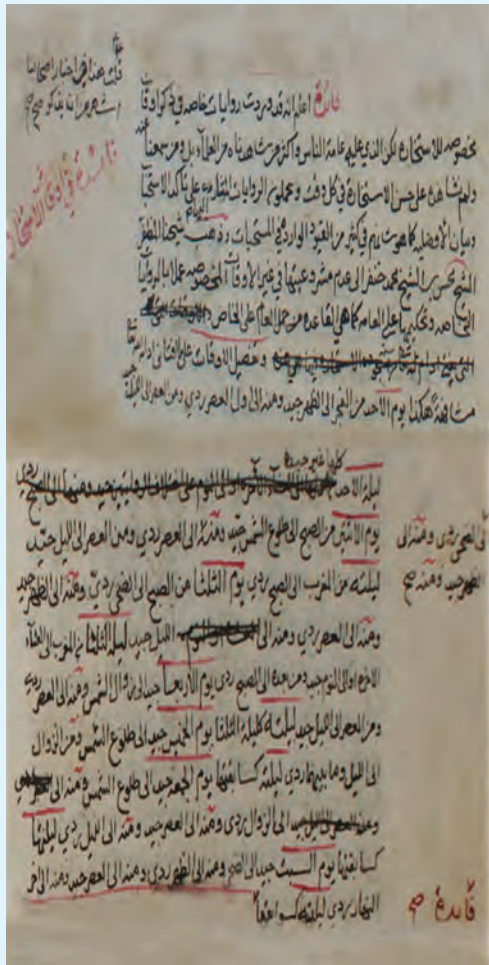 فائدة اعلم انه قد وردت روايات خاصه في ذكر اوقات
مخصوصه للاستخاره لكن الذي عليه عامة الناس واكثر من شاهدناه من العلماء بل ومن سمعنا عنه
ولم نشاهده على حسن الاستخارة في كل وقت وحملوا الروايات على تاكد الاستحباب
وبيان الافضليه كما هو في كثير من القيود الوارده في المستحبات وذهب شيخنا
الشيخ محسن بن الشيخ محمد خنفر الى عدم مشروعيتها في غير الاوقات المخصوصه عملا بالروايات
الخاصه وتحكيمها على العامه كما هي القاعده من حمل العام على الخاص
وتفصيل الاوقات على
هكذا يوم الاحد من الفجر الى الظهر جيد ومنه الى اول العصر ردي ومن العصر الى الليل جيد
كلها غير جيدة
ليلة الاحد
يوم الاثنين من الصبح الى طلوع الشمس جيد ومنه الى العصر ردي ومن العصر الى الليل جيد
ليلته من المغرب الى الصبح ردي يوم الثلثا من الصبح الى الضحى ردي ومنه الى الظهر جيد
ومنه الى العصر ردي ومنه الى الليل جيد ليلة الثلثا من المغرب الى العشاء
الاخره او الى النوم جيد ومن بعده الى الصبح ردي يوم الاربعا جيد الى زوال الشمس ومنه الى العصر ردي
ومن العصر الى الليل جيد ليلته كليلة الثلثا يوم الخميس جيد الى طلوع الشمس ومن الزوال
الى الليل وما بينهما ردي ليلته كسابقتها يوم الجمعه جيد الى طلوع الشمس ومنه الى
الى الزوال ردي ومنه الى العصر جيد ومنه الى الليل ردي ليلتها
كسابقتها يوم السبت جيد الى الضحى ومنه الى الظهر ردي ومنه الى العصر جيد ومنه الى اخر
النهار ردي ليلته كسوابقها
الى الضحى ردي ومنه الى
الظهر جيد ومنه صح
فائدة صح
فائدة في اوقات الاستخارة